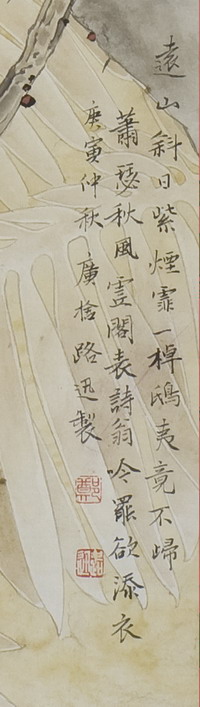 遠山斜日紫煙霏一棹鴟夷竟不歸
蕭瑟秋風閣詩翁吟罷欲添衣
庚寅仲秋廣捨路迅製